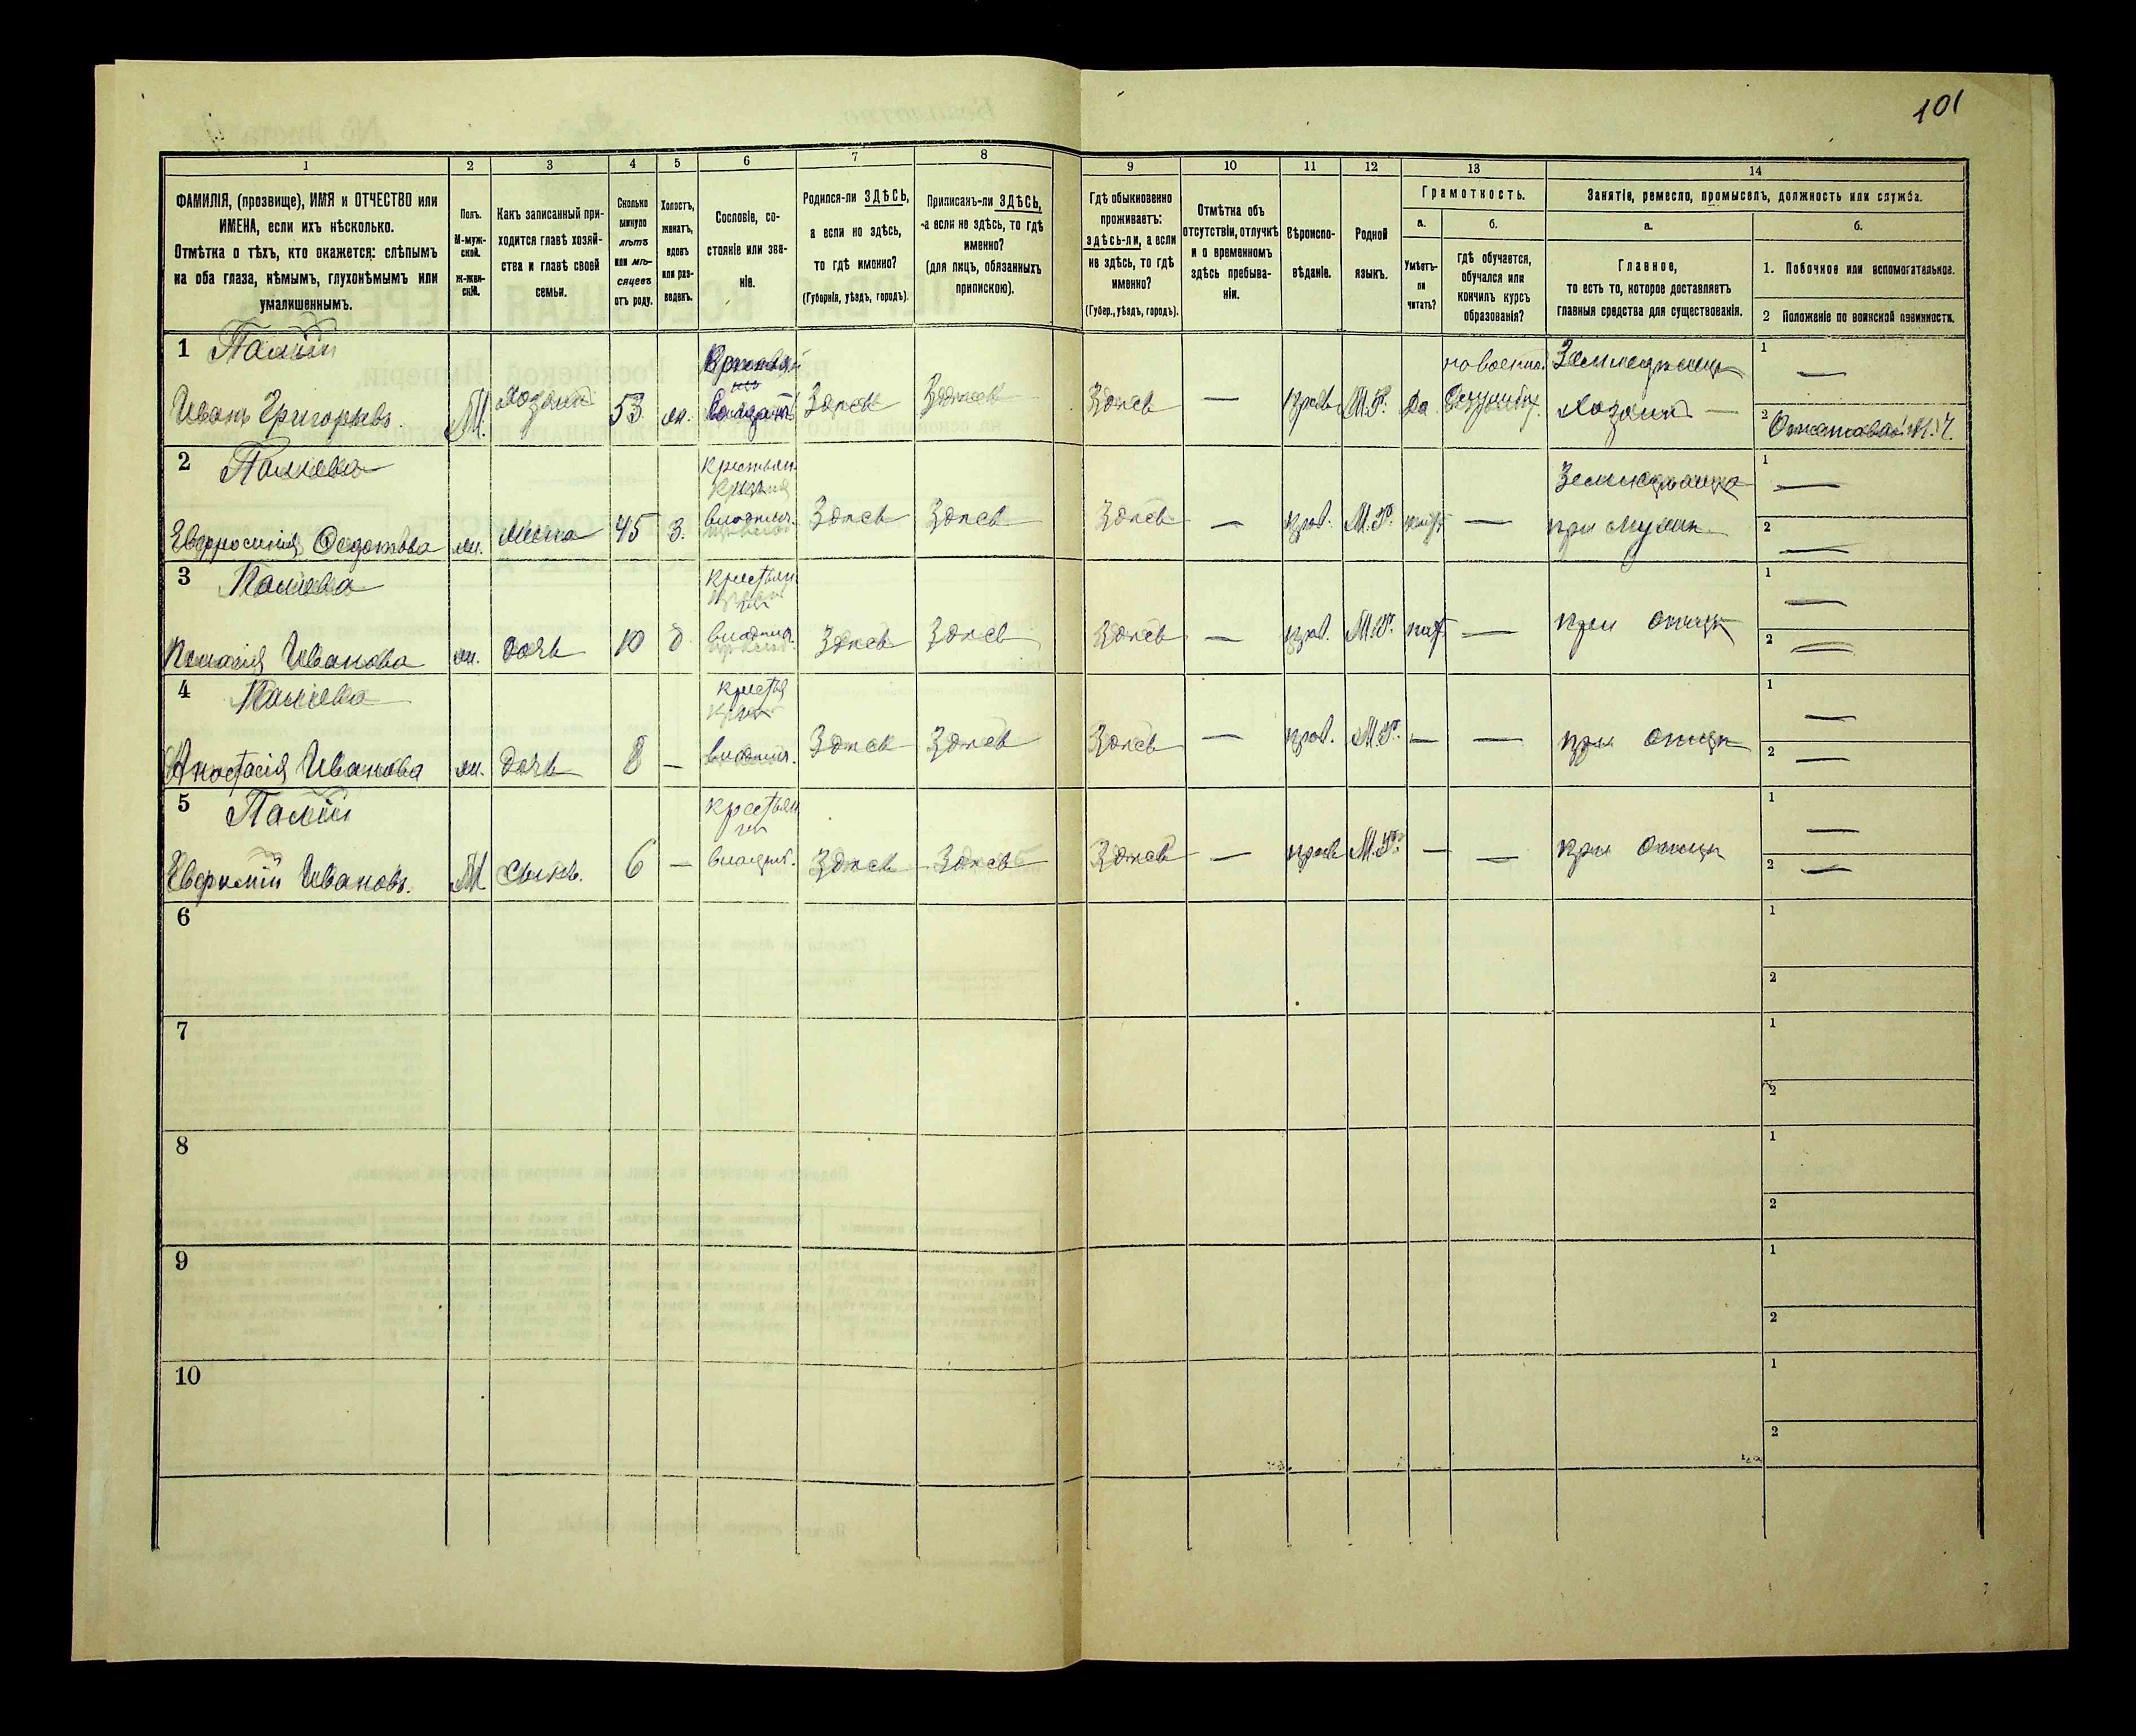 101
1
2
3
4
5
6
7
8
9
10
11
12
13
14
ФАМИЛІЯ, (прозвище), ИМЯ и ОТЧЕСТВО или
ИМЕНА, если ихъ нѣсколько.
Отмѣтка о тѣхъ, кто окажется: слѣпымъ
на оба глаза, нѣмымъ, глухонѣмымъ или
умалишеннымъ.
Полъ.
М-муж-
ской.
ж-жен-
скій.
Какъ записанный при-
ходится главѣ хозяй-
ства и главѣ своей
семьи.
Сколько
минуло
лѣтъ
или мѣ-
сяцевъ
отъ роду.
Холостъ,
женатъ,
вдовъ
или раз-
веденъ.
Сословіе, со-
стояніе или зва-
ніе.
Родился-ли ЗДѢСЬ,
а если не здѣсь,
то гдѣ именно?
(Губернія, уѣздъ, городъ).
Приписанъ-ли ЗДѢСЬ,
а если не здѣсь, то гдѣ
именно?
(для лицъ, обязанныхъ
припискою).
Гдѣ обыкновенно
проживаетъ:
здѣсь-ли, а если
не здѣсь, то гдѣ
именно?
(Губер., уѣздъ, городъ).
Отмѣтка объ
отсутствіи, отлучкѣ
и о временномъ
здѣсь пребыва-
ніи.
Вѣроиспо-
вѣданіе.
Родной
языкъ.
Грамотность.
а.
Умѣетъ-
ли
читать?
б.
гдѣ обучается,
обучался или
кончилъ курсъ
образованія?
Занятіе, ремесло, промыселъ, должность или служба.
а.
Главное,
то есть то, которое доставляетъ
главныя средства для существованія.
б.
1. Побочное или вспомогательное.
2 Положеніе по воинской повинности.
1 Палій
Иванъ Григорьевъ
М.
Хозяинъ
53
ж.
Здѣсь
Здѣсь
Здѣсь
—
прав.
М.Р.
Да
Земледѣлецъ
Хозяинъ
1 —
2
2 Паліева
Евфросинія Федотова
ж.
жена
45
з.
крестьян.
владѣл.
Здѣсь
Здѣсь
Здѣсь
—
прав.
М.Р.
нѣт.
—
при мужѣ
1 —
2 —
3 Паліева
Пелагія Иванова
ж.
дочь
10
д
крестьян.
владѣл.
Здѣсь
Здѣсь
Здѣсь
—
прав.
М.Р.
нѣт.
—
при отцѣ
1 —
2 —
4 Паліева
Анастасія Иванова
ж.
дочь
8
—
крестья
владѣл.
Здѣсь
Здѣсь
Здѣсь
—
прав.
М.Р.
—
—
при отцѣ
1 —
2 —
5 Палій
Евфимій Ивановъ.
М
Сынъ.
6
—
крестьян
владѣл.
Здѣсь
Здѣсь
Здѣсь
—
прав
М.Р.
—
—
при отцѣ
1 —
2 —
6
1
2
7
1
2
8
1
2
9
1
2
10
1
2